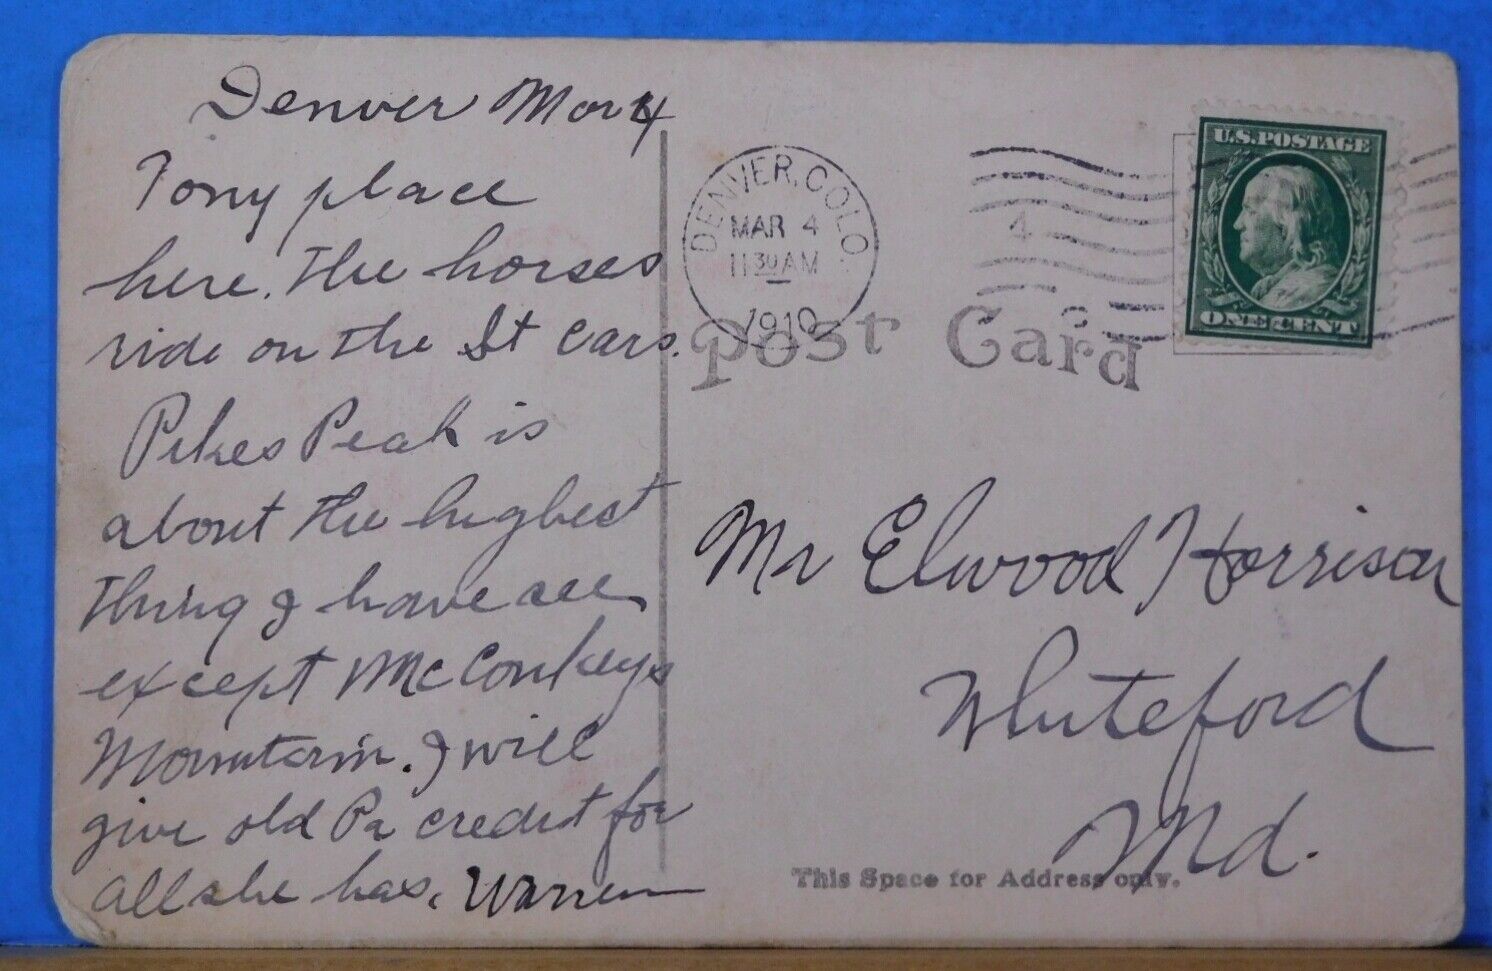 Denver Mar 4
Tony place
here. The horses
ride on the St Cars.
Pikes Peak is
about the highest
thing I have see
except McConkeys
Mountain. I will
give old Pa credit for
all she has. Warren
DENVER, COLO.
MAR 4
11 30 AM
1910
4
U.S. POSTAGE
ONE CENT
Post Card
Mr Elwood Harrison
Whiteford
Md.
This Space for Address only.